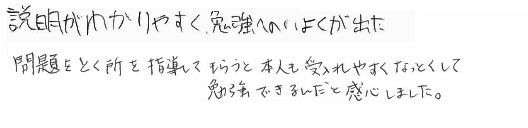 説明がわかりやすく、勉強へのいよくが出た
問題をとく所を指導してもらうと本人も受入れやすくなっとくして
勉強できるんだと感心しました。